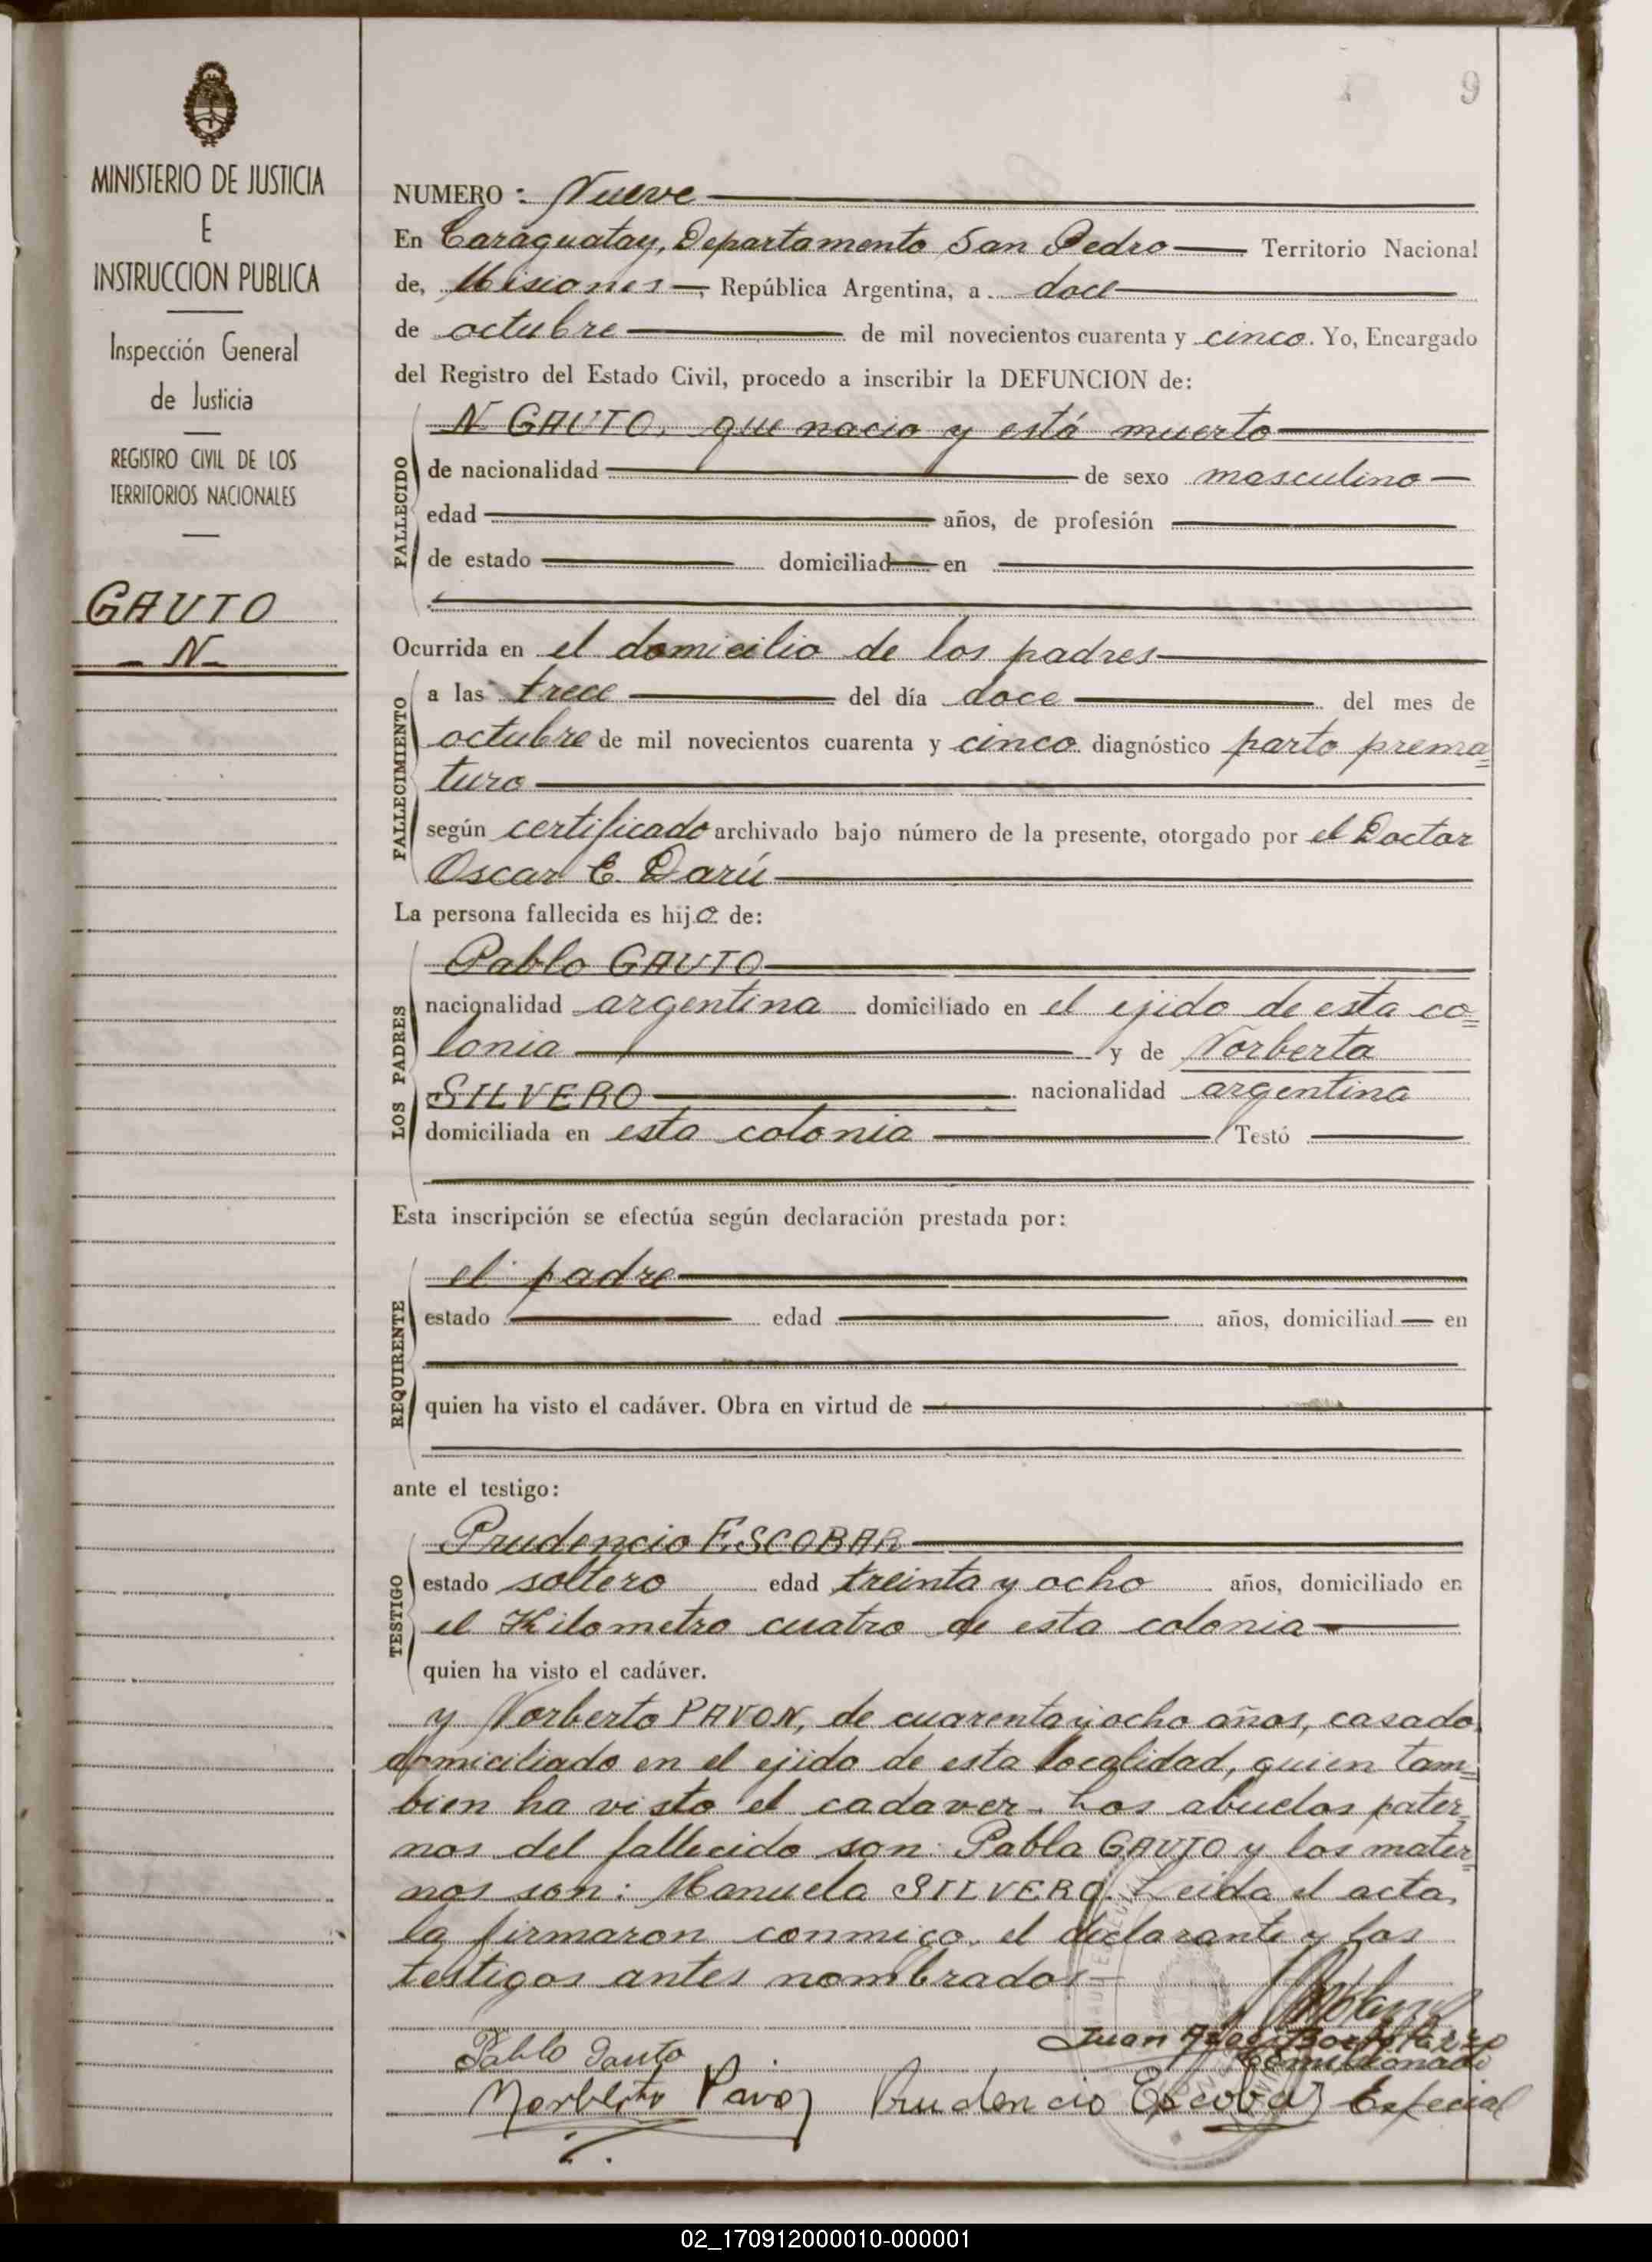 9
MINISTERIO DE JUSTICIA
E
INSTRUCCION PUBLICA
Inspección General
de Justicia
REGISTRO CIVIL DE LOS
TERRITORIOS NACIONALES
GAUTO
- N -
NUMERO: Nueve
En Caraguatay, Departamento San Pedro Territorio Nacional
de, Misiones, República Argentina, a doce
de octubre de mil novecientos cuarenta y cinco. Yo, Encargado
del Registro del Estado Civil, procedo a inscribir la DEFUNCION de:
FALLECIDO
N GAUTO, que nacio y está muerto
de nacionalidad de sexo masculino
edad años, de profesión
de estado domiciliad en
Ocurrida en el domicilio de los padres
FALLECIMIENTO
a las trece del día doce del mes de
octubre de mil novecientos cuarenta y cinco. diagnóstico parto prema=
turo
según certificado archivado bajo número de la presente, otorgado por el Doctor
Oscar E. Darú
La persona fallecida es hijo de:
LOS PADRES
Pablo GAUTO
nacionalidad argentina domiciliado en el ejido de esta co=
lonia y de Norberta
SILVERO nacionalidad argentina
domiciliada en esta colonia Testó
Esta inscripción se efectúa según declaración prestada por:
REQUIRENTE
el padre
estado edad años, domiciliad en
quien ha visto el cadáver. Obra en virtud de
ante el testigo:
TESTIGO
Prudencio ESCOBAR
estado soltero edad treinta y ocho años, domiciliado en
el Kilometro cuatro de esta colonia
quien ha visto el cadáver.
y Norberto PAVON, de cuarenta y ocho años, casado,
domiciliado en el ejido de esta localidad, quien tam=
bien ha visto el cadaver. Los abuelos pater=
nos del fallecido son: Pabla GAUTO y los mater=
nos son: Manuela SILVERO. Leida el acta,
la firmaron conmigo, el declarante y los
testigos antes nombrados
Pablo Gauto
Juan
Comisionado
Norberto Pavon Prudencio Escobar Especial
02_170912000010-000001